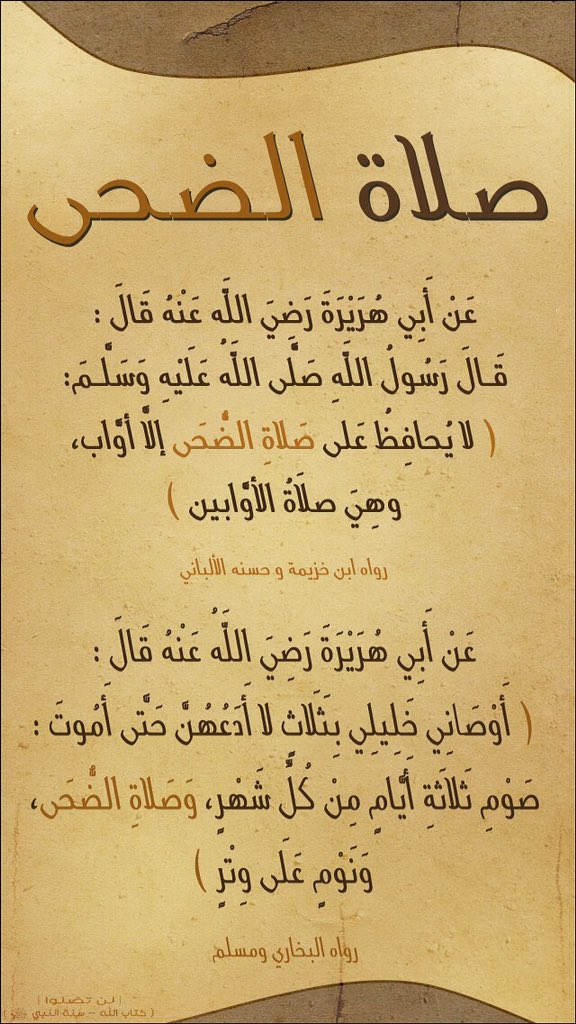 صلاة الضحى
عَنْ أَبِي هُرَيْرَةَ رَضِيَ اللَّه عَنْهُ قَالَ :
قَـالَ رَسُولُ اللَّهِ صَلَّى اللَّهُ عَلَيْهِ وَسَلَّـمَ:
( لا يُحافِظُ عَلى صَلاةِ الضُّحَى إلاَّ أوَّاب،
وهِيَ صلاَةُ الأوَّابين )
رواه ابن خزيمة و حسنه الألباني
عَنْ أَبِي هُرَيْرَةَ رَضِيَ اللَّهُ عَنْهُ قَالَ :
( أَوْصَانِي خَلِيلِي بِثَلَاثٍ لا أَدَعُهُنَّ حَتَّى أَمُوتَ :
صَوْمِ ثَلاثَةِ أَيَّامٍ مِنْ كُلِّ شَهْرٍ، وَصَلاةِ الضُّحَى،
وَنَوْمٍ عَلَى وِتْرٍ )
رواه البخاري ومسلم
| لن تضلوا |
( كتاب الله - سنة النبي ﷺ )